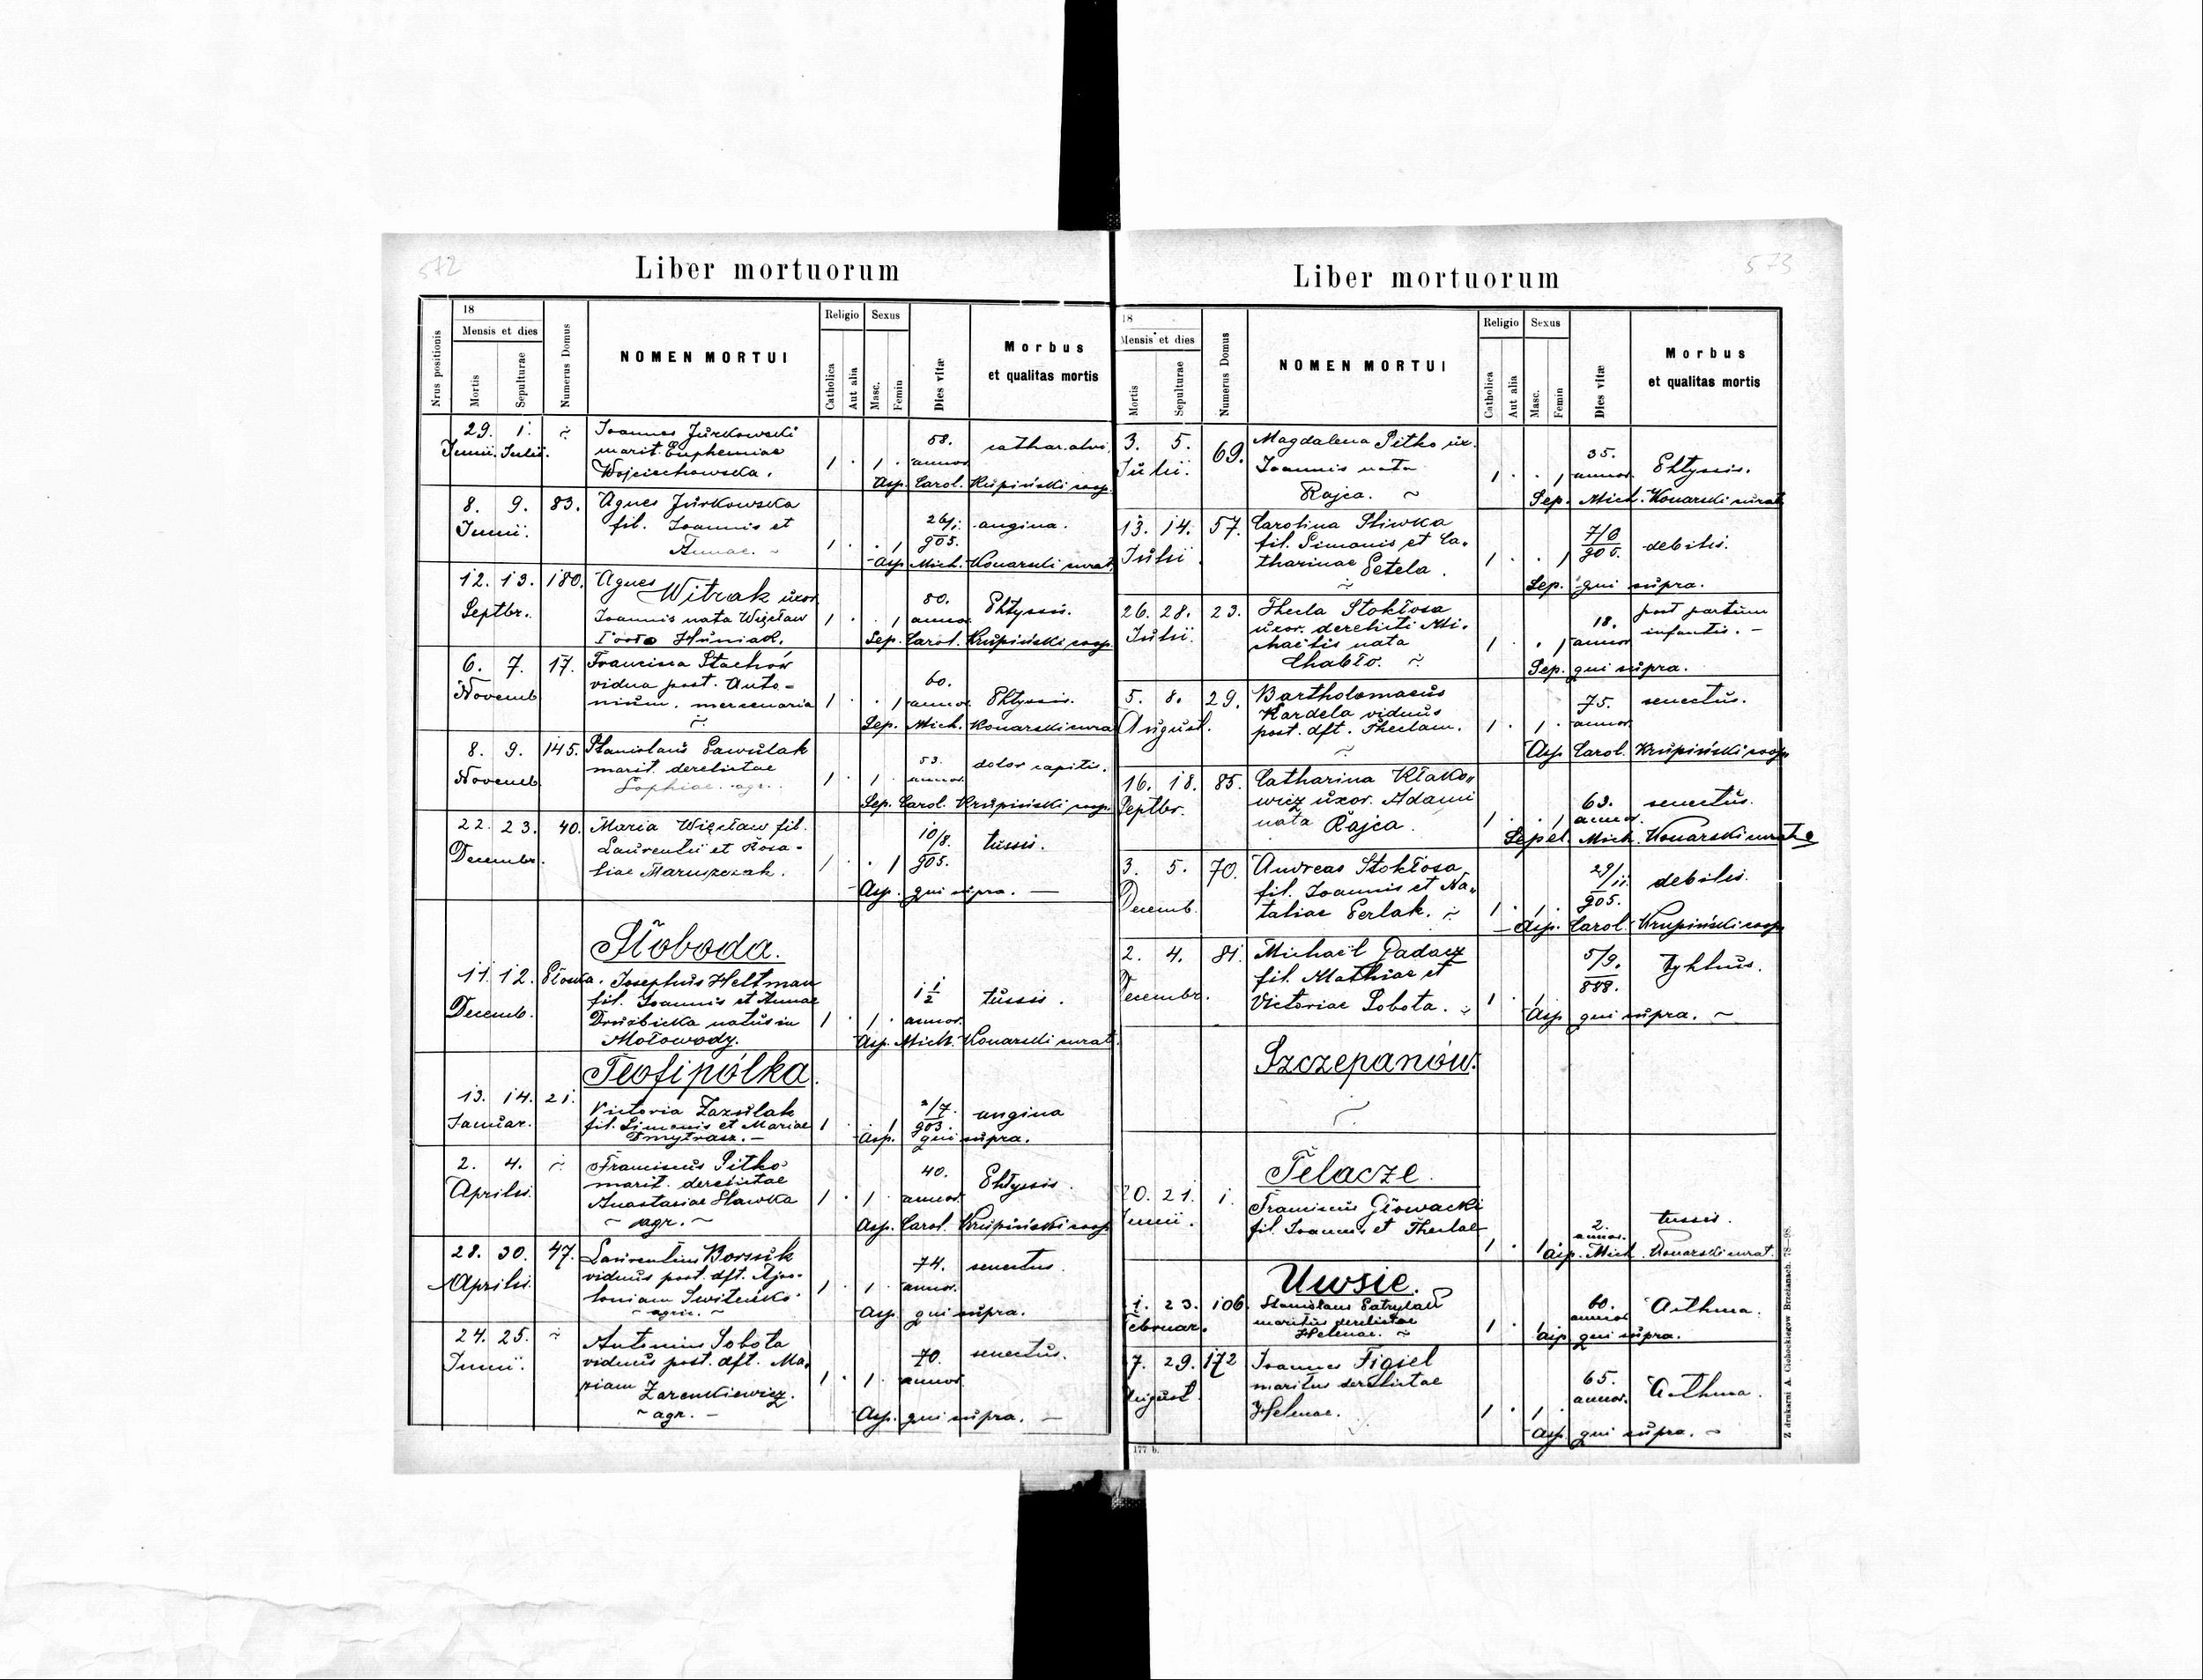 572
Liber mortuorum
Nrus positionis
18
Mensis et dies
Mortis
Sepulturae
Numerus Domus
NOMEN MORTUI
Religio
Catholica
Aut alia
Sexus
Masc.
Femin
Dies vitæ
Morbus
et qualitas mortis
29. 1. ~ Joannes Jurkowski 58. cathar. alvi.
Junii. Julii. marit. Euphemiae 1 . 1 . annor.
Wojciechowska. Asp. Carol. Krupiński coop.
8. 9. 83. Agnes Jurkowska 26/1. angina.
Junii. fil. Joannis et 905.
Annae. ~ 1 . . 1 Asp. Mich. Konarski curat.
12. 13. 180. Agnes Witrak uxor 80. Phtysis.
Septbr. Joannis nata Więcław 1 . . 1 annor.
Huniak. Sep. Carol. Krupiński coop.
6. 7. 17. Francisca Stachów 60. Phtysis.
Novemb. vidua post. Anto-
nium. mercenaria 1 . . 1 annor.
~ Sep. Mich. Konarski curat
8. 9. 145. Stanislaus Pawulak 53. dolor capitis.
Novemb. marit. derelictae 1 . 1 . annor.
Sophiae. agr. Sep. Carol. Krupiński coop.
22. 23. 40. Maria Więcław fil. 10/8. tussis.
Decembr. Laurentii et Rosa- 905.
liae Maruszczak. 1 . . 1
Asp. qui supra. —
Słoboda.
11. 12. Słowa. Josephus Heltman 1 1/2 tussis.
Decemb. fil. Joannis et Annae annor.
Drużbicka natus in 1 . 1 .
Mołowody. Asp. Mich. Konarski curat.
Teofipólka.
13. 14. 21. Victoria Zazulak 2/7. angina
Januar. fil. Simonis et Mariae 1 . . 1 903.
Dmytrasz. — Asp. qui supra.
2. 4. ~ Franciscus Pitko 40. Phtysis.
Aprilis. marit. derelictae annor.
Anastasiae Sławka 1 . 1 .
~ agr. ~ Asp. Carol. Krupiński coop
28. 30. 47. Laurentius Borsuk 74. senectus.
Aprilis. viduus post. dft. Apo-
loniam Switeńko 1 . 1 . annor.
~ agric. ~ Asp. qui supra.
24. 25. ~ Antonius Sobota 70. senectus.
Junii. viduus post. dft. Ma-
riam Zarenkiewicz. 1 . 1 . annor.
~ agr. — Asp. qui supra. —
573
Liber mortuorum
18
Mensis et dies
Mortis
Sepulturae
Numerus Domus
NOMEN MORTUI
Religio
Catholica
Aut alia
Sexus
Masc.
Femin
Dies vitæ
Morbus
et qualitas mortis
3. 5. 69. Magdalena Pitko ux. 35. Phtysis.
Julii. Joannis nata 1 . . 1 annor.
Rajca. ~ Sep. Mich. Konarski curat
13. 14. 57. Carolina Sliwka 7/6 debilis.
Julii. fil. Simonis et Ca- 905.
tharinae Petela. 1 . . 1
~ Sep. qui supra.
26. 28. 23. Thecla Stokłosa 18. post partum
Julii. uxor. derelicti Mi- infantis. —
chaëlis nata 1 . . 1 annor
Chabło. ~ Sep. qui supra.
5. 8. 29. Bartholomaeus 75. senectus.
August. Kardela viduus annor.
post. dft. Theclam. 1 . 1 .
~ Asp. Carol. Krupiński coop.
16. 18. 85. Catharina Kłako- 63. senectus.
Septbr. wicz uxor. Adami annor.
nata Rajca. 1 . Sepel. Mich. Konarski curat
3. 5. 70. Andreas Stokłosa 29/11. debilis.
Decemb. fil. Joannis et Na- 905.
taliae Perlak. ~ 1 . 1 .
Asp. Carol. Krupiński coop
2. 4. 81. Michaël Padacz 5/9. typhus.
Decembr. fil. Mathiae et 888.
Victoriae Sobota. ~ 1 . 1 Asp. qui supra. ~
Szczepanów.
~
Telacze.
20. 21. 1. Franciscus Głowacki 2. tussis.
Junii. fil. Joannis et Theclae annor.
1 . 1 Asp. Mich. Konarski curat.
Uwsie.
1. 23. 106. Stanislaus Patrylak 60. Asthma.
Februar. maritus derelictae annor
Helenae. ~ 1 . 1 Asp. qui supra.
7. 29. 172 Joannes Figiel 65. Asthma.
August. maritus derelictae annor.
Helenae. 1 . 1 .
Asp. qui supra. ~
177 b.
Z drukarni A. Ciehockiegow Brzeżanach. 78—98.